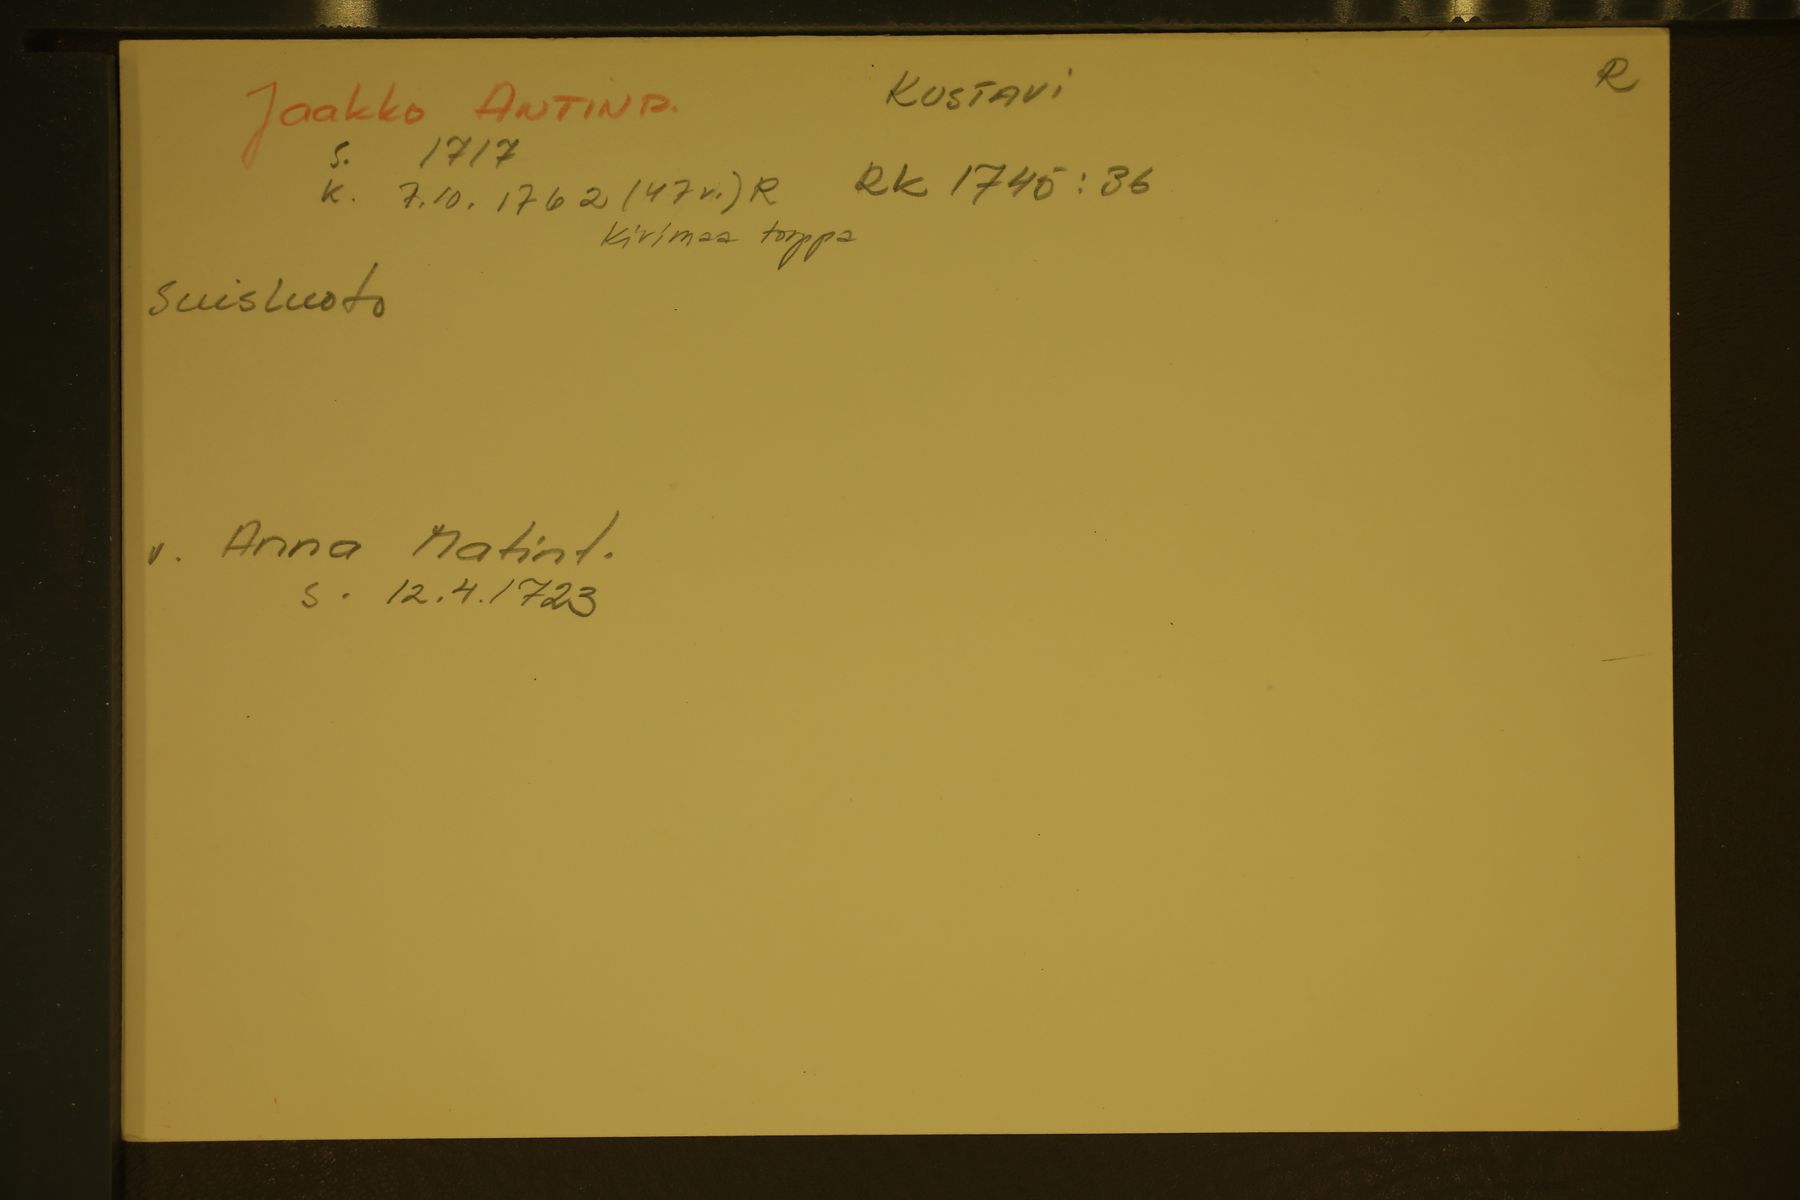 Jaakko ANTINP. KUSTAVI R
s. 1717
k. 7.10.1762 (47 v.) R RK 1745:36
Kivimaa torppa
Suisluoto
v. Anna Matint.
s. 12.4.1723